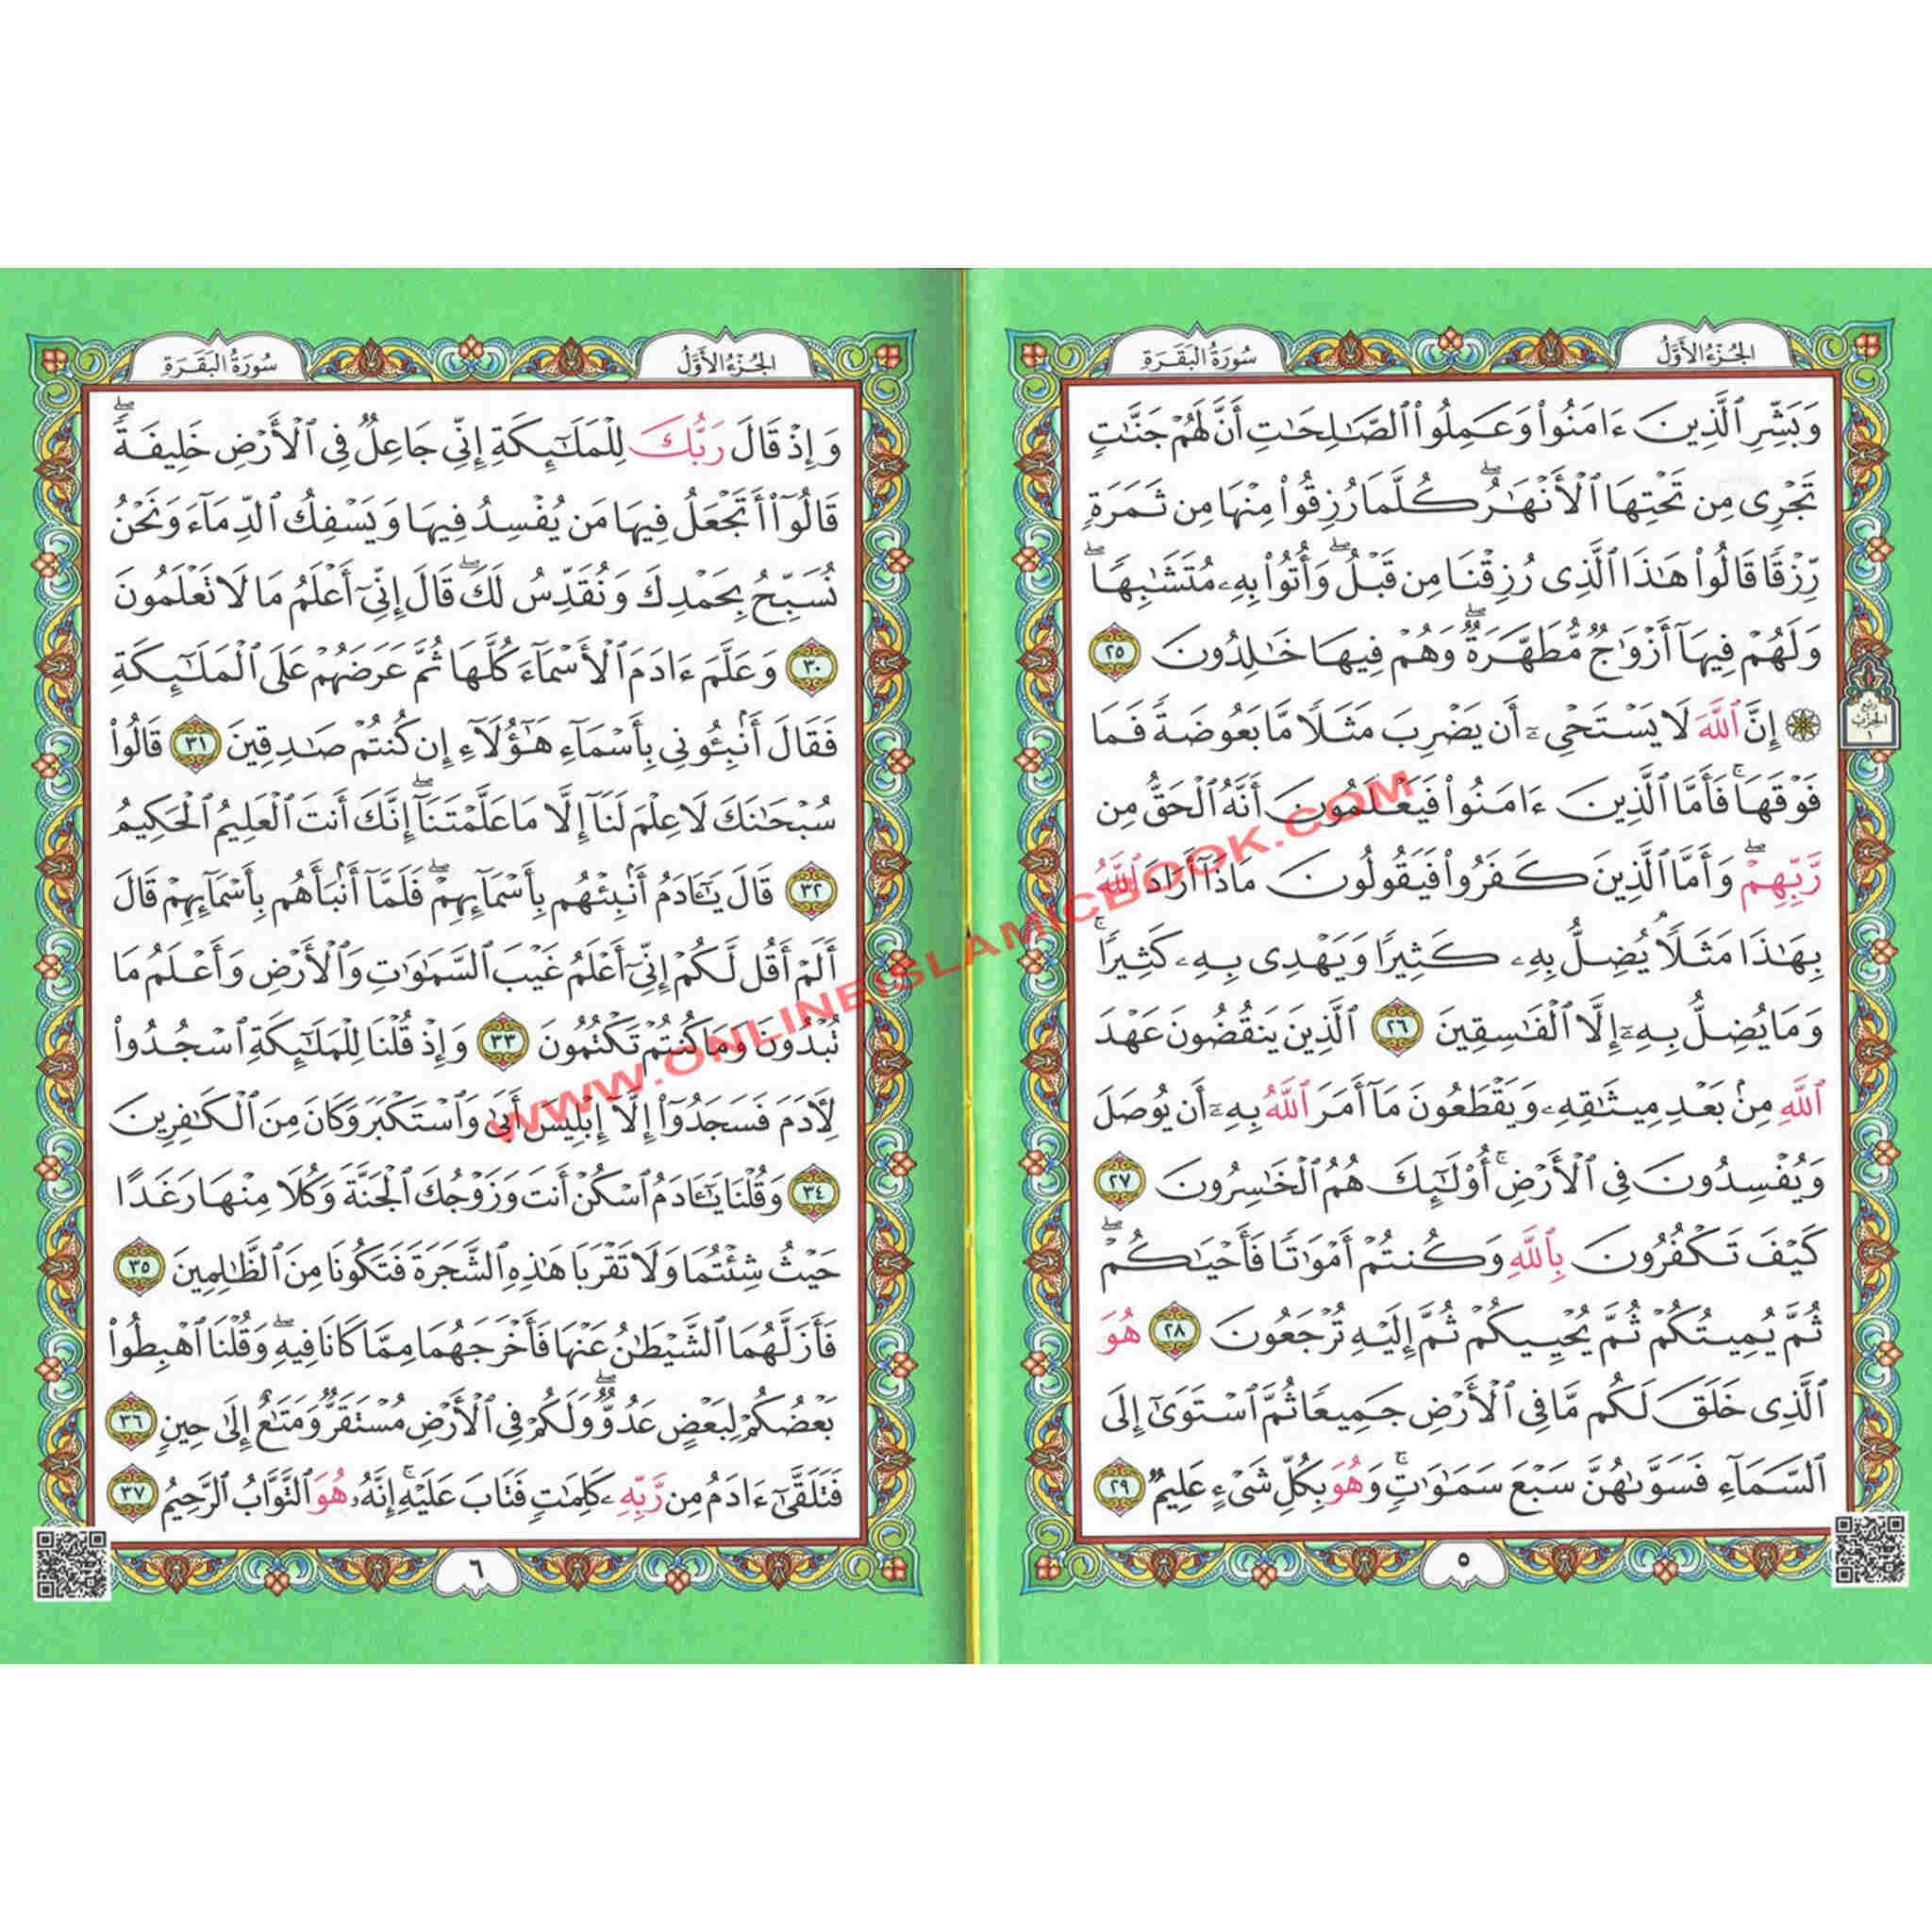 الجُزْءُ الأَوَّلُ
سُورَةُ البَقَرَةِ
وَبَشِّرِ ٱلَّذِينَ ءَامَنُوا۟ وَعَمِلُوا۟ ٱلصَّٰلِحَٰتِ أَنَّ لَهُمْ جَنَّٰتٍ
تَجْرِى مِن تَحْتِهَا ٱلْأَنْهَٰرُ ۖ كُلَّمَا رُزِقُوا۟ مِنْهَا مِن ثَمَرَةٍ
رِّزْقًا قَالُوا۟ هَٰذَا ٱلَّذِى رُزِقْنَا مِن قَبْلُ ۖ وَأُتُوا۟ بِهِۦ مُتَشَٰبِهًا ۖ
وَلَهُمْ فِيهَآ أَزْوَٰجٌ مُّطَهَّرَةٌ ۖ وَهُمْ فِيهَا خَٰلِدُونَ ٢٥
۞ إِنَّ ٱللَّهَ لَا يَسْتَحْىِۦٓ أَن يَضْرِبَ مَثَلًا مَّا بَعُوضَةً فَمَا
فَوْقَهَا ۚ فَأَمَّا ٱلَّذِينَ ءَامَنُوا۟ فَيَعْلَمُونَ أَنَّهُ ٱلْحَقُّ مِن
رَّبِّهِمْ ۖ وَأَمَّا ٱلَّذِينَ كَفَرُوا۟ فَيَقُولُونَ مَاذَآ أَرَادَ ٱللَّهُ
بِهَٰذَا مَثَلًا ۘ يُضِلُّ بِهِۦ كَثِيرًا وَيَهْدِى بِهِۦ كَثِيرًا ۚ
وَمَا يُضِلُّ بِهِۦٓ إِلَّا ٱلْفَٰسِقِينَ ٢٦ ٱلَّذِينَ يَنقُضُونَ عَهْدَ
ٱللَّهِ مِنۢ بَعْدِ مِيثَٰقِهِۦ وَيَقْطَعُونَ مَآ أَمَرَ ٱللَّهُ بِهِۦٓ أَن يُوصَلَ
وَيُفْسِدُونَ فِى ٱلْأَرْضِ ۚ أُو۟لَٰٓئِكَ هُمُ ٱلْخَٰسِرُونَ ٢٧
كَيْفَ تَكْفُرُونَ بِٱللَّهِ وَكُنتُمْ أَمْوَٰتًا فَأَحْيَٰكُمْ ۖ
ثُمَّ يُمِيتُكُمْ ثُمَّ يُحْيِيكُمْ ثُمَّ إِلَيْهِ تُرْجَعُونَ ٢٨ هُوَ
ٱلَّذِى خَلَقَ لَكُم مَّا فِى ٱلْأَرْضِ جَمِيعًا ثُمَّ ٱسْتَوَىٰٓ إِلَى
ٱلسَّمَآءِ فَسَوَّىٰهُنَّ سَبْعَ سَمَٰوَٰتٍ ۚ وَهُوَ بِكُلِّ شَىْءٍ عَلِيمٌ ٢٩
ربع
الحزب
١
٥
الجُزْءُ الأَوَّلُ
سُورَةُ البَقَرَةِ
وَإِذْ قَالَ رَبُّكَ لِلْمَلَٰٓئِكَةِ إِنِّى جَاعِلٌ فِى ٱلْأَرْضِ خَلِيفَةً ۖ
قَالُوٓا۟ أَتَجْعَلُ فِيهَا مَن يُفْسِدُ فِيهَا وَيَسْفِكُ ٱلدِّمَآءَ وَنَحْنُ
نُسَبِّحُ بِحَمْدِكَ وَنُقَدِّسُ لَكَ ۖ قَالَ إِنِّىٓ أَعْلَمُ مَا لَا تَعْلَمُونَ
٣٠ وَعَلَّمَ ءَادَمَ ٱلْأَسْمَآءَ كُلَّهَا ثُمَّ عَرَضَهُمْ عَلَى ٱلْمَلَٰٓئِكَةِ
فَقَالَ أَنۢبِـُٔونِى بِأَسْمَآءِ هَٰٓؤُلَآءِ إِن كُنتُمْ صَٰدِقِينَ ٣١ قَالُوا۟
سُبْحَٰنَكَ لَا عِلْمَ لَنَآ إِلَّا مَا عَلَّمْتَنَآ ۖ إِنَّكَ أَنتَ ٱلْعَلِيمُ ٱلْحَكِيمُ
٣٢ قَالَ يَٰٓـَٔادَمُ أَنۢبِئْهُم بِأَسْمَآئِهِمْ ۖ فَلَمَّآ أَنۢبَأَهُم بِأَسْمَآئِهِمْ قَالَ
أَلَمْ أَقُل لَّكُمْ إِنِّىٓ أَعْلَمُ غَيْبَ ٱلسَّمَٰوَٰتِ وَٱلْأَرْضِ وَأَعْلَمُ مَا
تُبْدُونَ وَمَا كُنتُمْ تَكْتُمُونَ ٣٣ وَإِذْ قُلْنَا لِلْمَلَٰٓئِكَةِ ٱسْجُدُوا۟
لِءَادَمَ فَسَجَدُوٓا۟ إِلَّآ إِبْلِيسَ أَبَىٰ وَٱسْتَكْبَرَ وَكَانَ مِنَ ٱلْكَٰفِرِينَ
٣٤ وَقُلْنَا يَٰٓـَٔادَمُ ٱسْكُنْ أَنتَ وَزَوْجُكَ ٱلْجَنَّةَ وَكُلَا مِنْهَا رَغَدًا
حَيْثُ شِئْتُمَا وَلَا تَقْرَبَا هَٰذِهِ ٱلشَّجَرَةَ فَتَكُونَا مِنَ ٱلظَّٰلِمِينَ ٣٥
فَأَزَلَّهُمَا ٱلشَّيْطَٰنُ عَنْهَا فَأَخْرَجَهُمَا مِمَّا كَانَا فِيهِ ۖ وَقُلْنَا ٱهْبِطُوا۟
بَعْضُكُمْ لِبَعْضٍ عَدُوٌّ ۖ وَلَكُمْ فِى ٱلْأَرْضِ مُسْتَقَرٌّ وَمَتَٰعٌ إِلَىٰ حِينٍ ٣٦
فَتَلَقَّىٰٓ ءَادَمُ مِن رَّبِّهِۦ كَلِمَٰتٍ فَتَابَ عَلَيْهِ ۚ إِنَّهُۥ هُوَ ٱلتَّوَّابُ ٱلرَّحِيمُ ٣٧
٦
WWW.ONLINEISLAMICBOOK.COM